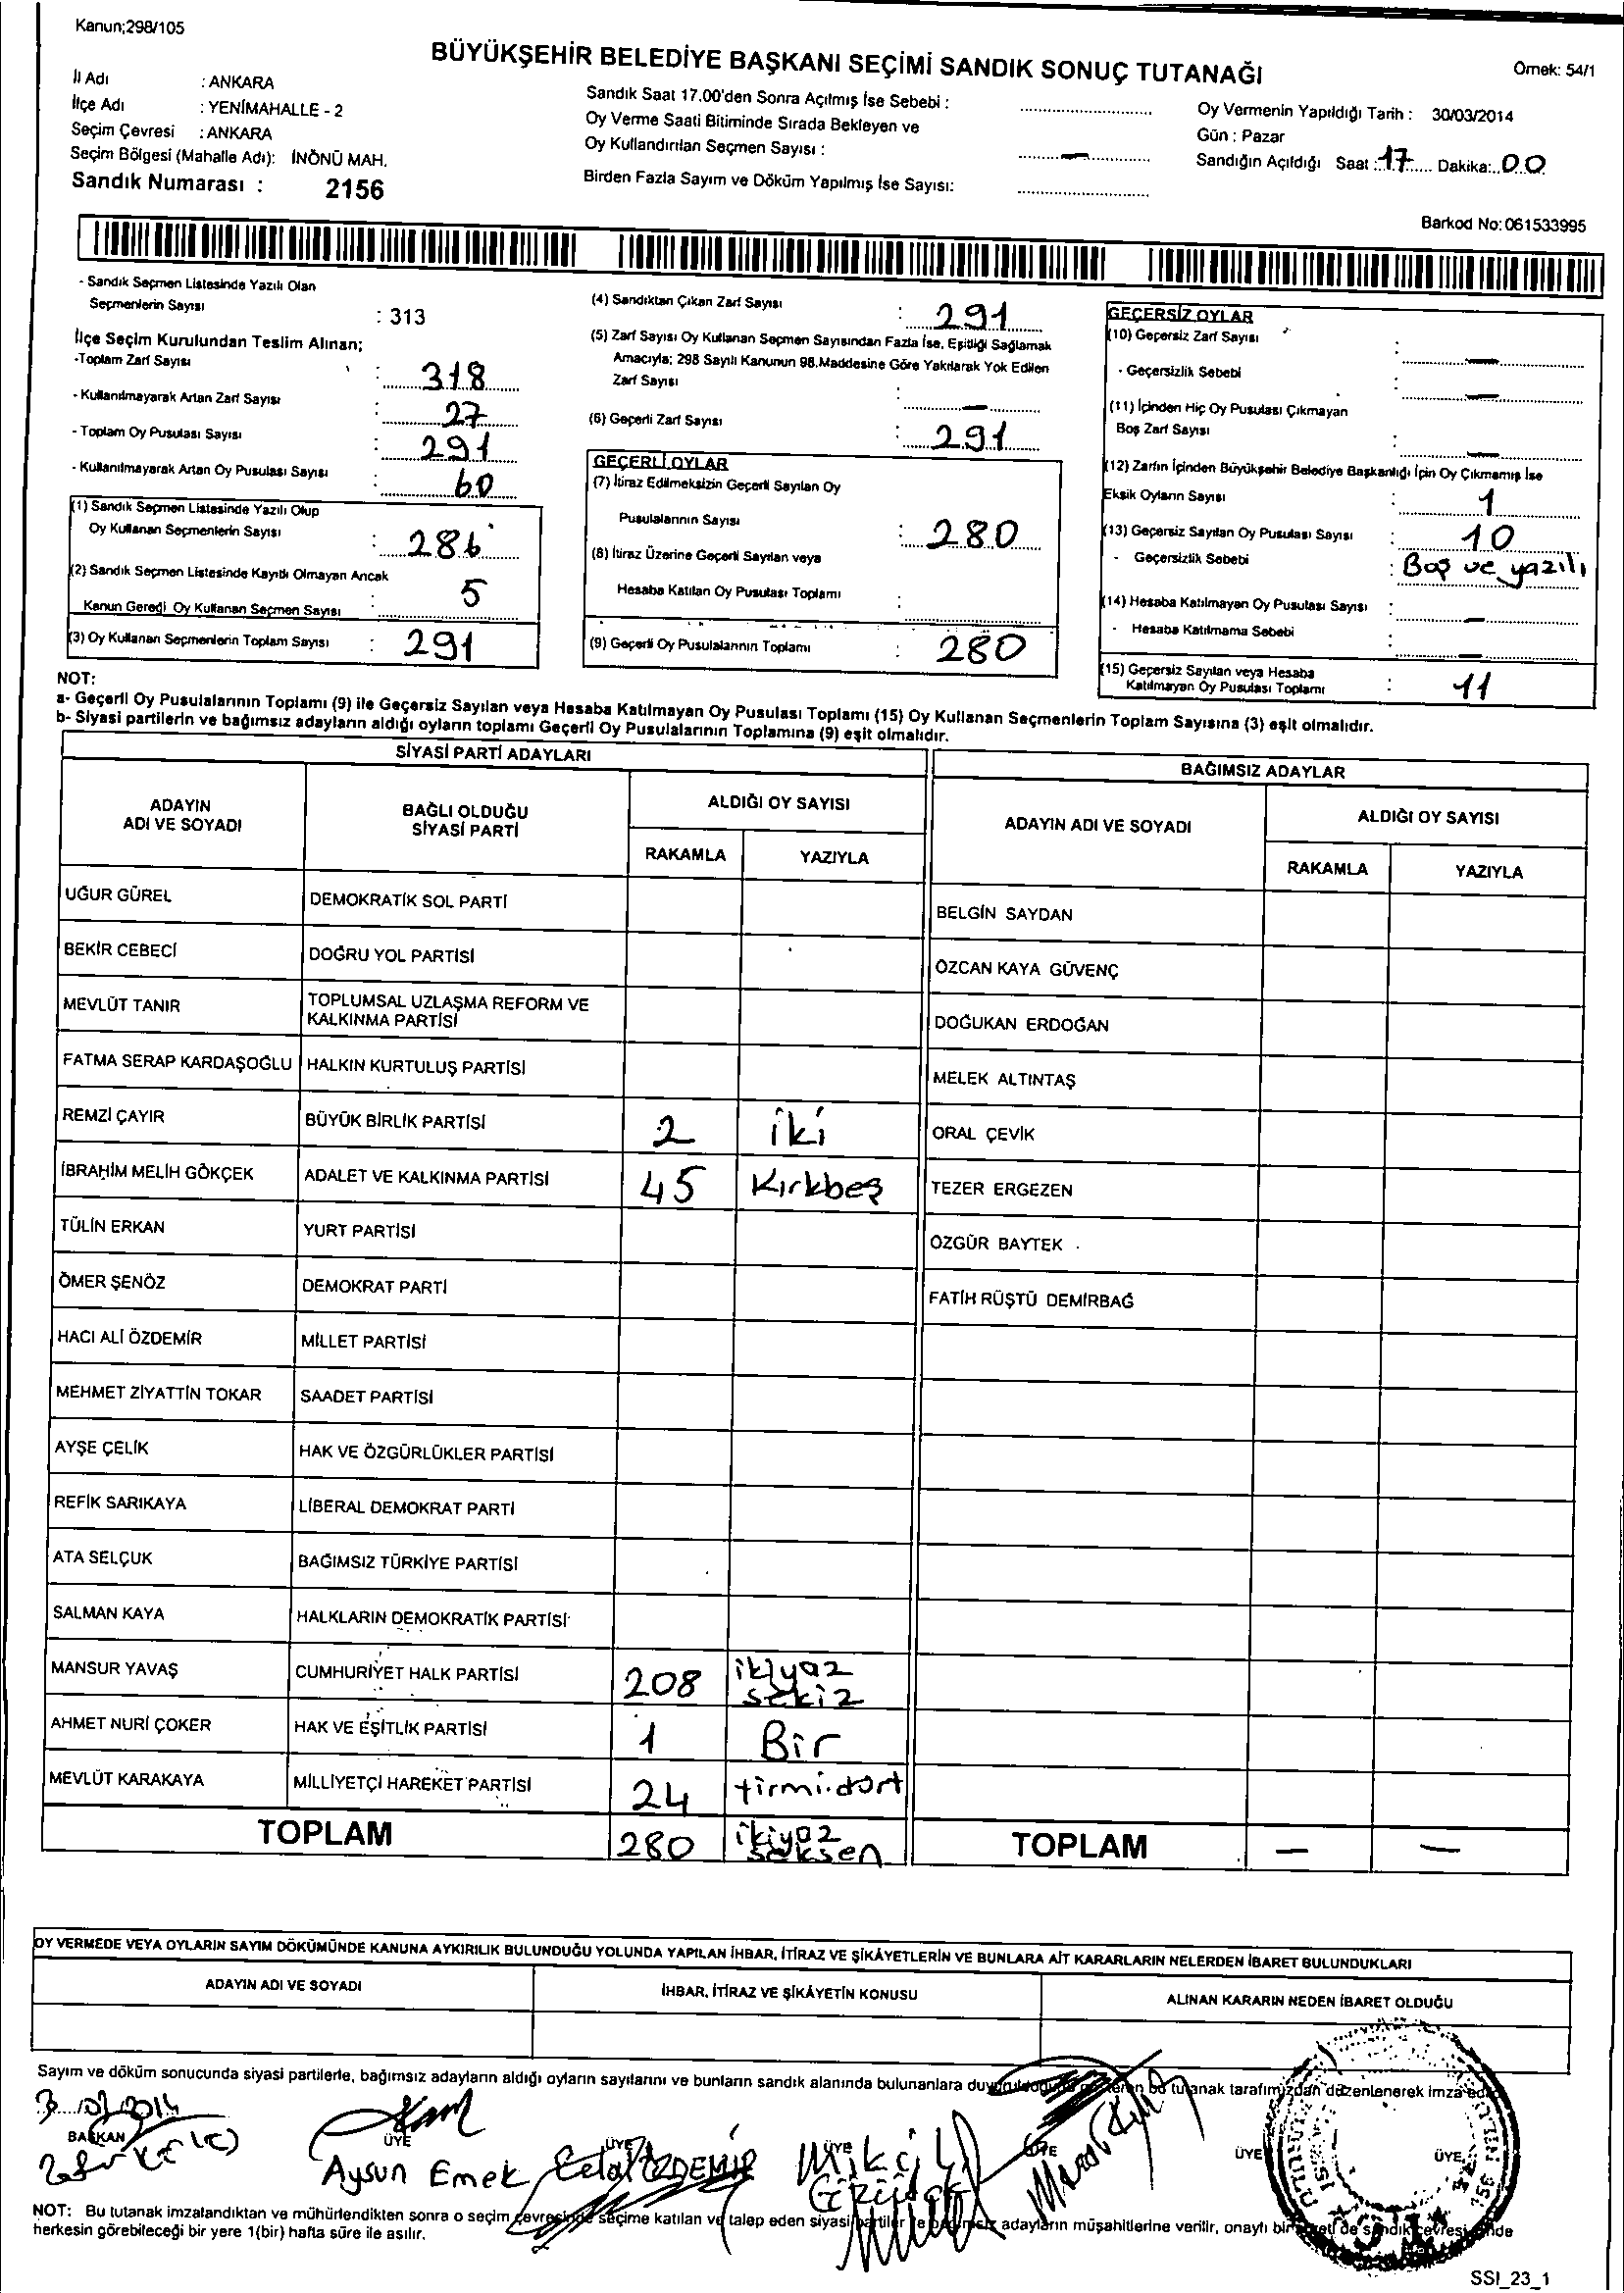 Kanun;298/105
BÜYÜKŞEHİR BELEDİYE BAŞKANI SEÇİMİ SANDIK SONUÇ TUTANAĞI
Örnek: 54/1
İl Adı : ANKARA
İlçe Adı : YENİMAHALLE - 2
Seçim Çevresi : ANKARA
Seçim Bölgesi (Mahalle Adı): İNÖNÜ MAH.
Sandık Numarası : 2156
Sandık Saat 17.00'den Sonra Açılmış İse Sebebi :
Oy Verme Saati Bitiminde Sırada Bekleyen ve
Oy Kullandırılan Seçmen Sayısı : —
Birden Fazla Sayım ve Döküm Yapılmış İse Sayısı:
Oy Vermenin Yapıldığı Tarih : 30/03/2014
Gün : Pazar
Sandığın Açıldığı Saat : 17 Dakika: 00
Barkod No: 061533995
- Sandık Seçmen Listesinde Yazılı Olan
Seçmenlerin Sayısı : 313
İlçe Seçim Kurulundan Teslim Alınan;
-Toplam Zarf Sayısı : 318
- Kullanılmayarak Artan Zarf Sayısı : 27
- Toplam Oy Pusulası Sayısı : 291
- Kullanılmayarak Artan Oy Pusulası Sayısı 60
(1) Sandık Seçmen Listesinde Yazılı Olup
Oy Kullanan Seçmenlerin Sayısı : 286
(2) Sandık Seçmen Listesinde Kayıtlı Olmayan Ancak
Kanun Gereği Oy Kullanan Seçmen Sayısı : 5
(3) Oy Kullanan Seçmenlerin Toplam Sayısı : 291
(4) Sandıktan Çıkan Zarf Sayısı : 291
(5) Zarf Sayısı Oy Kullanan Seçmen Sayısından Fazla İse, Eşitliği Sağlamak
Amacıyla; 298 Sayılı Kanunun 98.Maddesine Göre Yakılarak Yok Edilen
Zarf Sayısı : —
(6) Geçerli Zarf Sayısı : 291
GEÇERLİ OYLAR
(7) İtiraz Edilmeksizin Geçerli Sayılan Oy
Pusulalarının Sayısı : 280
(8) İtiraz Üzerine Geçerli Sayılan veya
Hesaba Katılan Oy Pusulası Toplamı :
(9) Geçerli Oy Pusulalarının Toplamı : 280
GEÇERSİZ OYLAR
(10) Geçersiz Zarf Sayısı : —
- Geçersizlik Sebebi : —
(11) İçinden Hiç Oy Pusulası Çıkmayan
Boş Zarf Sayısı : —
(12) Zarfın İçinden Büyükşehir Belediye Başkanlığı İçin Oy Çıkmamış İse
Eksik Oyların Sayısı : 1
(13) Geçersiz Sayılan Oy Pusulası Sayısı : 10
- Geçersizlik Sebebi : Boş ve yazılı
(14) Hesaba Katılmayan Oy Pusulası Sayısı : —
- Hesaba Katılmama Sebebi : —
(15) Geçersiz Sayılan veya Hesaba
Katılmayan Oy Pusulası Toplamı : 11
NOT:
a- Geçerli Oy Pusulalarının Toplamı (9) ile Geçersiz Sayılan veya Hesaba Katılmayan Oy Pusulası Toplamı (15) Oy Kullanan Seçmenlerin Toplam Sayısına (3) eşit olmalıdır.
b- Siyasi partilerin ve bağımsız adayların aldığı oyların toplamı Geçerli Oy Pusulalarının Toplamına (9) eşit olmalıdır.
SİYASİ PARTİ ADAYLARI
ADAYIN ADI VE SOYADI
BAĞLI OLDUĞU SİYASİ PARTİ
ALDIĞI OY SAYISI
RAKAMLA YAZIYLA
UĞUR GÜREL DEMOKRATİK SOL PARTİ
BEKİR CEBECİ DOĞRU YOL PARTİSİ
MEVLÜT TANIR TOPLUMSAL UZLAŞMA REFORM VE
KALKINMA PARTİSİ
FATMA SERAP KARDAŞOĞLU HALKIN KURTULUŞ PARTİSİ
REMZİ ÇAYIR BÜYÜK BİRLİK PARTİSİ 2 iki
İBRAHİM MELİH GÖKÇEK ADALET VE KALKINMA PARTİSİ 45 Kırkbeş
TÜLİN ERKAN YURT PARTİSİ
ÖMER ŞENÖZ DEMOKRAT PARTİ
HACI ALİ ÖZDEMİR MİLLET PARTİSİ
MEHMET ZİYATTİN TOKAR SAADET PARTİSİ
AYŞE ÇELİK HAK VE ÖZGÜRLÜKLER PARTİSİ
REFİK SARIKAYA LİBERAL DEMOKRAT PARTİ
ATA SELÇUK BAĞIMSIZ TÜRKİYE PARTİSİ
SALMAN KAYA HALKLARIN DEMOKRATİK PARTİSİ
MANSUR YAVAŞ CUMHURİYET HALK PARTİSİ 208 ikiyüz
sekiz
AHMET NURİ ÇOKER HAK VE EŞİTLİK PARTİSİ 1 Bir
MEVLÜT KARAKAYA MİLLİYETÇİ HAREKET PARTİSİ 24 yirmidört
TOPLAM 280 ikiyüz
seksen
BAĞIMSIZ ADAYLAR
ADAYIN ADI VE SOYADI
ALDIĞI OY SAYISI
RAKAMLA YAZIYLA
BELGİN SAYDAN
ÖZCAN KAYA GÜVENÇ
DOĞUKAN ERDOĞAN
MELEK ALTINTAŞ
ORAL ÇEVİK
TEZER ERGEZEN
ÖZGÜR BAYTEK
FATİH RÜŞTÜ DEMİRBAĞ
TOPLAM — —
OY VERMEDE VEYA OYLARIN SAYIM DÖKÜMÜNDE KANUNA AYKIRILIK BULUNDUĞU YOLUNDA YAPILAN İHBAR, İTİRAZ VE ŞİKÂYETLERİN VE BUNLARA AİT KARARLARIN NELERDEN İBARET BULUNDUKLARI
ADAYIN ADI VE SOYADI
İHBAR, İTİRAZ VE ŞİKÂYETİN KONUSU
ALINAN KARARIN NEDEN İBARET OLDUĞU
Sayım ve döküm sonucunda siyasi partilerle, bağımsız adayların aldığı oyların sayılarını ve bunların sandık alanında bulunanlara duyurulduğunu gösteren bu tutanak tarafımızdan düzenlenerek imza edildi
BAŞKAN ÜYE ÜYE ÜYE ÜYE ÜYE ÜYE
Aysun Emek Celal ÖZDEMİR
NOT: Bu tutanak imzalandıktan ve mühürlendikten sonra o seçim çevresinde seçime katılan ve talep eden siyasi partiler ve bağımsız adayların müşahitlerine verilir, onaylı bir sureti de sandık çevresinde
herkesin görebileceği bir yere 1(bir) hafta süre ile asılır.
SSI_23_1